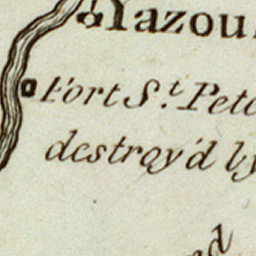 Yazou
Fort St. Pete
destroy'd by